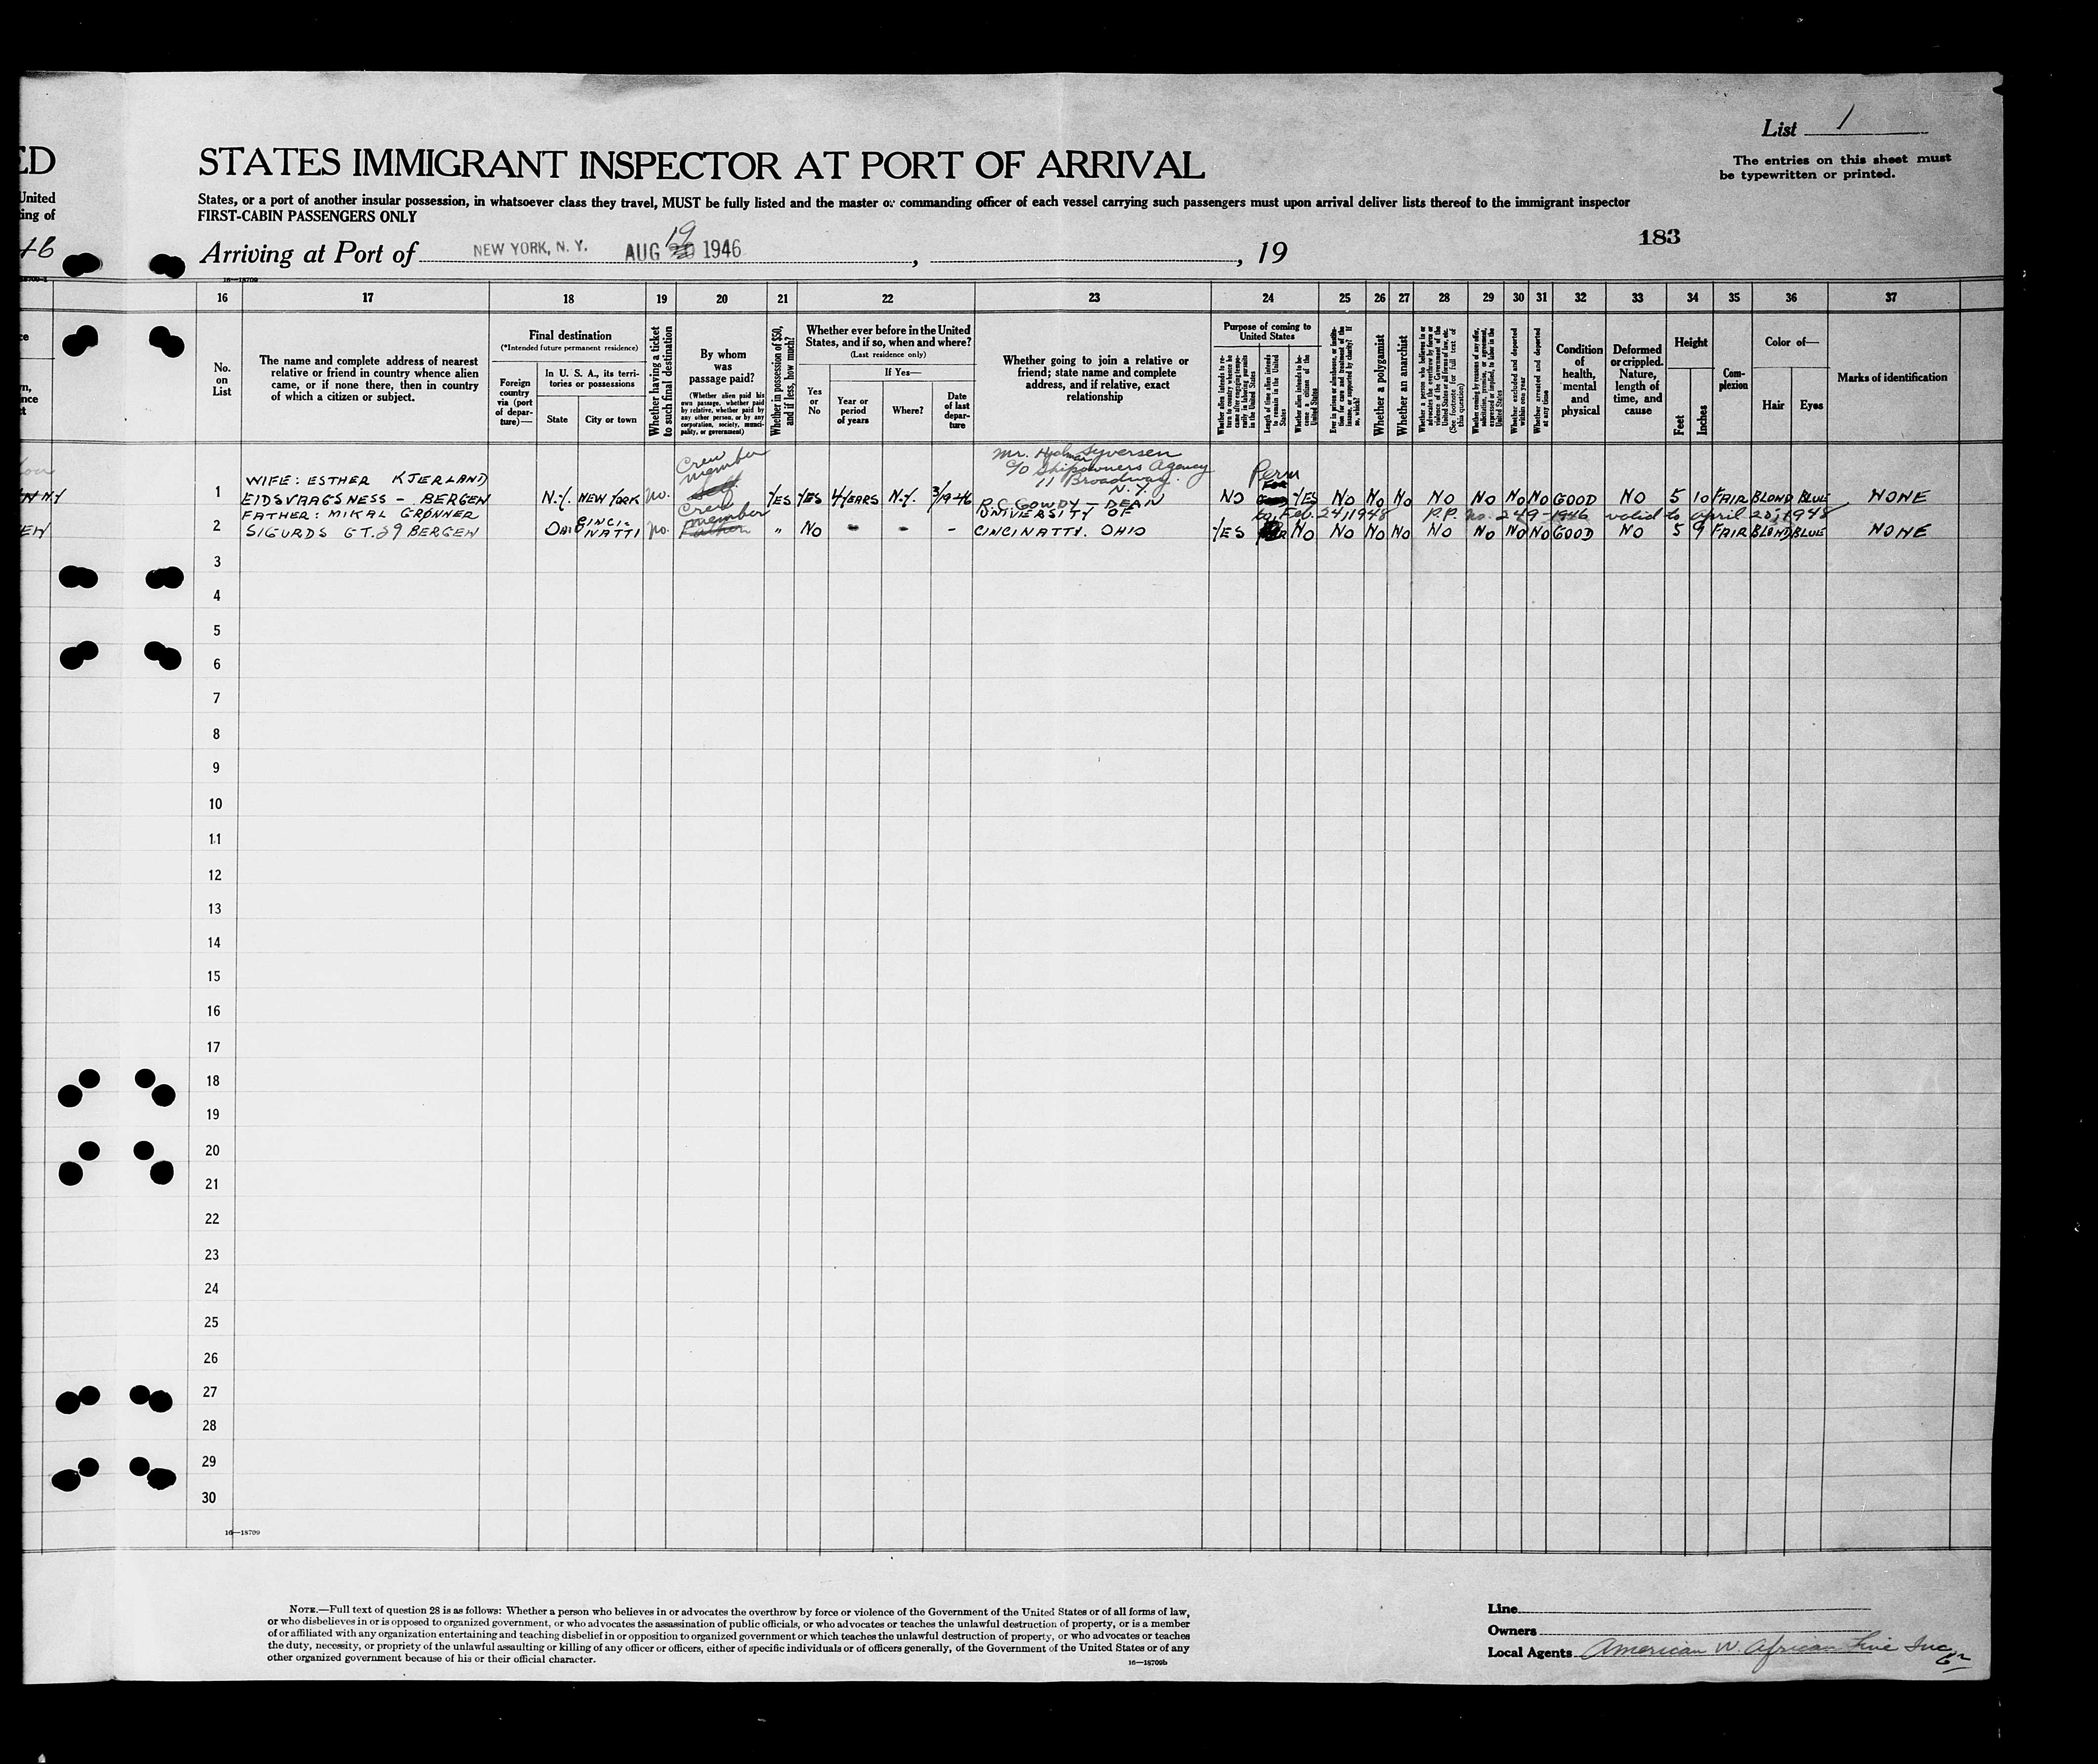 List 1
The entries on this sheet must
be typewritten or printed.
ED
STATES IMMIGRANT INSPECTOR AT PORT OF ARRIVAL
United
States, or a port of another insular possession, in whatsoever class they travel, MUST be fully listed and the master or commanding officer of each vessel carrying such passengers must upon arrival deliver lists thereof to the immigrant inspector
ing of
FIRST-CABIN PASSENGERS ONLY
46
Arriving at Port of NEW YORK, N. Y. AUG 19 1946, , 19
183
16—18709
16 17 18 19 20 21 22 23 24 25 26 27 28 29 30 31 32 33 34 35 36 37
No. on List
The name and complete address of nearest
relative or friend in country whence alien
came, or if none there, then in country
of which a citizen or subject.
Final destination
(*Intended future permanent residence)
Foreign country via (port of departure)—
In U. S. A., its territories or possessions
State
City or town
Whether having a ticket to such final destination
By whom was passage paid?
(Whether alien paid his own passage, whether paid by relative, whether paid by any other person, or by any corporation, society, municipality, or government)
Whether in possession of $50, and if less, how much?
Whether ever before in the United
States, and if so, when and where?
(Last residence only)
Yes or No
If Yes—
Year or period of years
Where?
Date of last departure
Whether going to join a relative or
friend; state name and complete
address, and if relative, exact
relationship
Purpose of coming to United States
Whether alien intends to return to country whence he came after engaging temporarily in laboring pursuits in the United States
Length of time alien intends to remain in the United States
Whether alien intends to become a citizen of the United States
Ever in prison or almshouse, or institution for care and treatment of the insane, or supported by charity? If so, which?
Whether a polygamist
Whether an anarchist
Whether a person who believes in or advocates the overthrow by force or violence of the Government of the United States or all forms of law, etc. (See footnote for full text of this question)
Whether coming by reason of any offer, solicitation, promise, or agreement, expressed or implied, to labor in the United States
Whether excluded and deported within one year
Whether arrested and deported at any time
Condition of health, mental and physical
Deformed or crippled. Nature, length of time, and cause
Height
Feet
Inches
Complexion
Color of—
Hair
Eyes
Marks of identification
Mr. Hjalmar Syversen
c/o Shipowners Agency
11 Broadway.
N.Y.
WIFE: ESTHER KJERLAND
Crew member
Perm
1 EIDSVAAGSNESS - BERGEN N.Y. NEW YORK no. YES YES 4 YEARS N.Y. 3/19-46 NO YES NO NO NO NO NO NO NO GOOD NO 5 10 FAIR BLOND BLUE NONE
FATHER: MIKAL GRØNNER
Crew member
R.C. GOWDY - DEAN
UNIVERSITY OF
to Feb. 24, 1948 P.P. No. 249-1946 valid to April 25, 1948
2 SIGURDS GT. 29 BERGEN OHIO CINCINATTI no. " NO - - - CINCINATTI. OHIO YES NO NO NO NO NO NO NO NO GOOD NO 5 9 FAIR BLOND BLUE NONE
3
4
5
6
7
8
9
10
11
12
13
14
15
16
17
18
19
20
21
22
23
24
25
26
27
28
29
30
16—18709
NOTE.—Full text of question 28 is as follows: Whether a person who believes in or advocates the overthrow by force or violence of the Government of the United States or of all forms of law,
or who disbelieves in or is opposed to organized government, or who advocates the assassination of public officials, or who advocates or teaches the unlawful destruction of property, or is a member
of or affiliated with any organization entertaining and teaching disbelief in or opposition to organized government or which teaches the unlawful destruction of property, or who advocates or teaches
the duty, necessity, or propriety of the unlawful assaulting or killing of any officer or officers, either of specific individuals or of officers generally, of the Government of the United States or of any
other organized government because of his or their official character.
16—18709b
Line
Owners
Local Agents American W. African Line Inc.